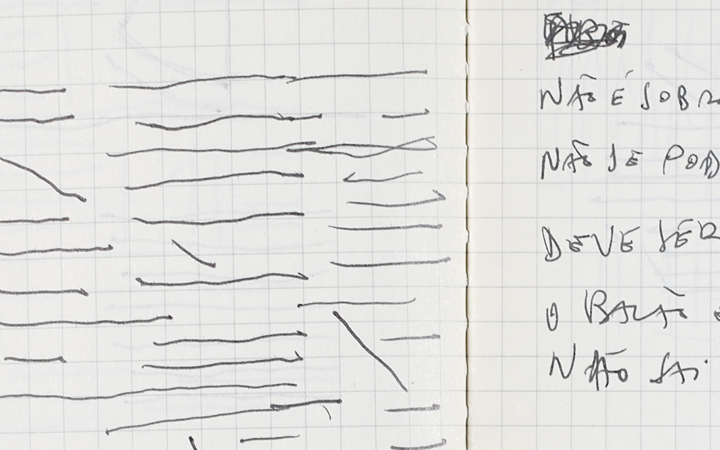 NÃO É SOBR
NÃO SE POD
DEVE SER
O BALÃO
NÃO SAI